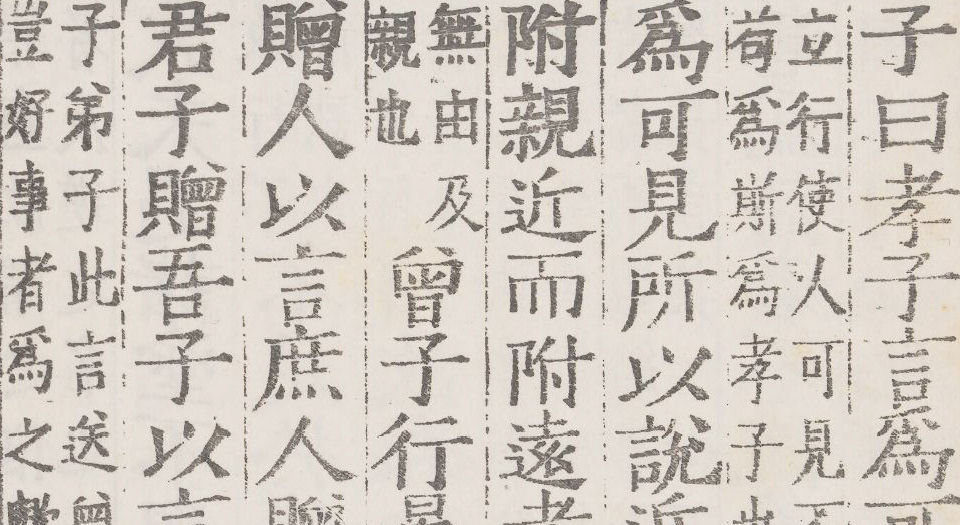 子曰孝子言爲可
立行使人可見不
苟爲斯爲孝子也
爲可見所以說近
附親近而附遠孝
無由及
親也
曾子行晏
贈人以言庶人贈
君子贈吾子以言
子弟子此言送曾
豈好事者爲之歟